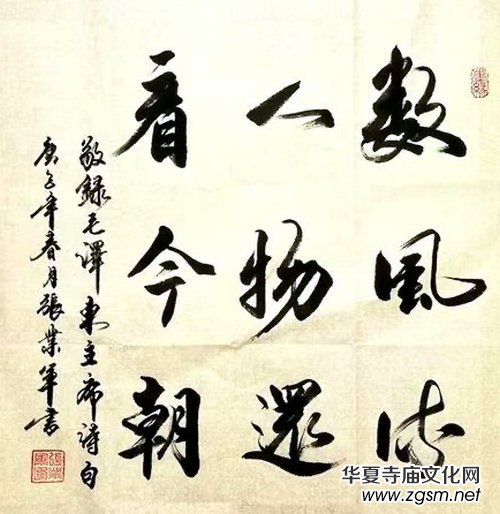 数風流
人物還
看今朝
敬錄毛澤東主席詩句
庚子年春月張業軍書
华夏寺庙文化网
www.zgsm.net